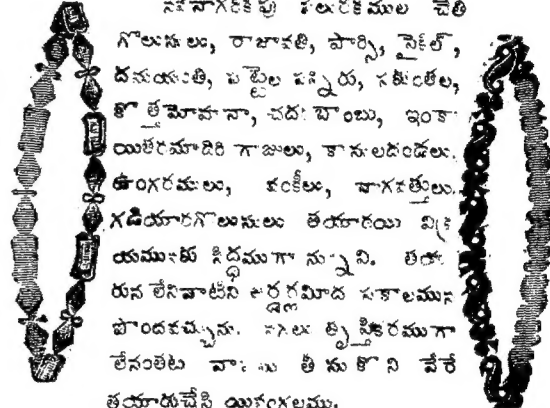 నవనాగరికపు పలురకముల చేతి
గొలుసులు, రాజావతి, పార్సి, సైకిల్,
దమయంతి, పట్టెల పన్నీరు, శకుంతల,
కొత్తమోహనా, చదు బాంబు, ఇంకా
యితరమాదిరి గాజులు, కాసులదండలు,
ఉంగరములు, వంకీలు, నాగవత్తులు,
గడియారగొలుసులు తయారయి విక్ర
యమునకు సిద్ధముగా నున్నవి. తయా
రున లేనివాటిని ఆర్డర్లమీద సకాలమున
పొందవచ్చును. నగలు తృప్తికరముగా
లేనంతట వాటిని తీసుకొని వేరే
తయారుచేసి యివ్వగలము.